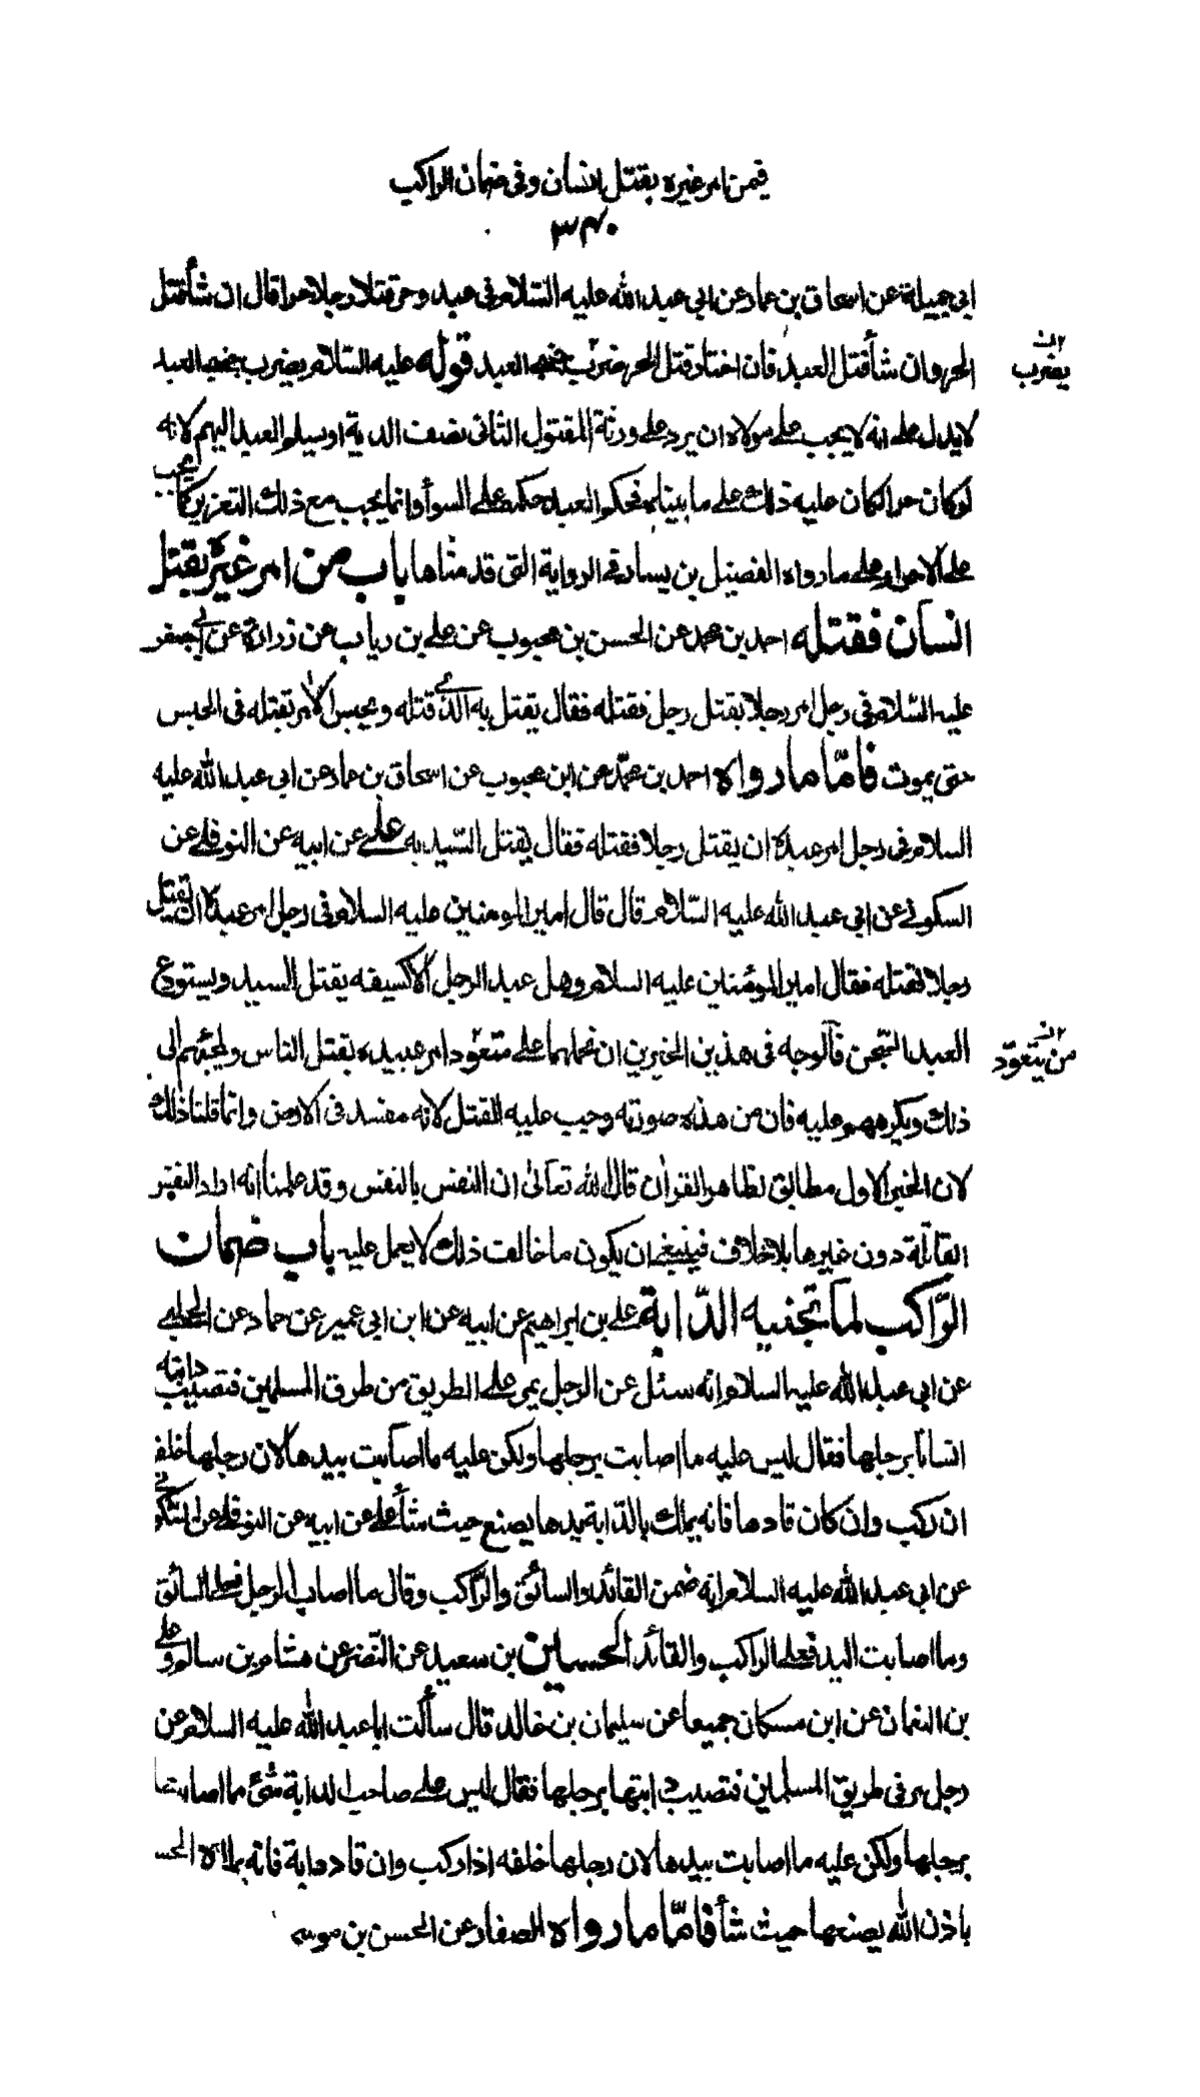 فيمن امر غيره بقتل انسان وفى ضمان الراكب
٣٤٠
ابى جميلة عن اسحاق بن عمار عن ابى عبد الله عليه السّلام فى عبد وحر قتلا رجلا حرا قال ان شأ قتل
الحر وان شأ قتل العبد فان اختار قتل الحر ضرب جنبى العبد قوله عليه السّلام يضرب جنبى العبد
يضرب
لا يدل على انه لا يجب على مولاه ان يرد على ورثة المقتول الثانى نصف الدية او يسلم العبد اليهم لانه
لو كان حرا لكان عليه ذلك على ما بيناه فحكم العبد حكمه على السوأ وانما يجب مع ذلك التعزير كما يجب
على الاحرار وعلى ما رواه الفضيل بن يسار فى الرواية التى قدمناها باب من امر غيره بقتل
انسان فقتله احمد بن محمد عن الحسن بن محبوب عن على بن رياب عن زرارة عن ابى جعفر
عليه السّلام فى رجل امر رجلا بقتل رجل فقتله فقال يقتل به الذى قتله ويحبس الامر بقتله فى الحبس
حتى يموت فامّا ما رواه احمد بن محمّد عن ابن محبوب عن اسحاق بن عمار عن ابى عبد الله عليه
السلام فى رجل امر عبده ان يقتل رجلا فقتله فقال يقتل السّيد به على عن ابيه عن النوفلى عن
السكونى عن ابى عبد الله عليه السّلام قال قال امير المومنين عليه السلام فى رجل امر عبده ان يقتل
رجلا فقتله فقال امير المؤمنين عليه السلام وهل عبد الرجل الا كسيفه يقتل السيد ويستودع
العبد السّجن فالوجه فى هذين الخبرين ان نحملهما على متعوّد امر عبيده بقتل الناس ويلجئهم الى
من يتعوّد
ذلك ويكرههم عليه فان من هذه صورته وجب عليه القتل لانه مفسد فى الارض وانما قلنا ذلك
لان الخبر الاول مطابق لظاهر القران قال الله تعالى ان النفس بالنفس وقد علمنا انه اراد النفس
القاتلة دون غيرها بلا خلاف فينبغى ان يكون ما خالف ذلك لا يعمل عليه باب ضمان
الرّاكب لما تجنيه الدّابة على بن ابراهيم عن ابيه عن ابن ابى عمير عن حماد عن الحلبى
عن ابى عبد الله عليه السلام انه سئل عن الرجل يمر على الطريق من طرق المسلمين فتصيب دابته
انسانا برجلها فقال ليس عليه ما اصابت برجلها ولكن عليه ما اصابت بيدها لان رجلها خلفه
ان ركب وان كان قادها فانه يملك بالدّابة يدها يصنع حيث شأ على عن ابيه عن النوفلى عن السّكونى
عن ابى عبد الله عليه السلام انه ضمن القائد والسائق والرّاكب وقال ما اصاب الرجل فعلى السائق
وما اصابت اليد فعلى الراكب والقائد الحسين بن سعيد عن النّضر عن هشام بن سالم وعلى
بن النعمان عن ابن مسكان جميعا عن سليمان بن خالد قال سألت ابا عبد الله عليه السلام عن
رجل مر فى طريق المسلمين فتصيب دابتها برجلها فقال ليس على صاحب الدابة شئ مما اصابت
برجلها ولكن عليه ما اصابت بيدها لان رجلها خلفه اذا ركب وان قاد دابة فانه يملك
باذن الله يصنعها حيث شأ فامّا ما رواه الصفار عن الحسن بن موسى